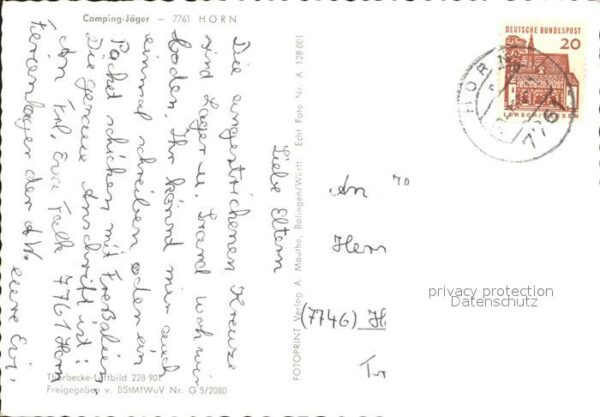 Camping-Jäger – 7761 HORN
Liebe Eltern
Die angestrichenen Kreuze
sind Lager u. Strand wo wir
baden. Ihr könnd mir auch
einmal schreiben oder ein
Packet schicken mit Freßalien.
Die genaue Anschrift ist:
An Frl. Eva Falk 7761 Horn
Ferienlager der AW. eure Evi.
Thorbecke-Luftbild 228 901
Freigegeben v. BStMfWuV Nr. G 5/2080
FOTOPRINT Verlag A. Mauthe, Balingen/Württ. Echt Foto Nr. A 128 001
DEUTSCHE BUNDESPOST
20
LORSCH/HESSEN
HORN
776
An
Herr
(7746) H
privacy protection
Datenschutz